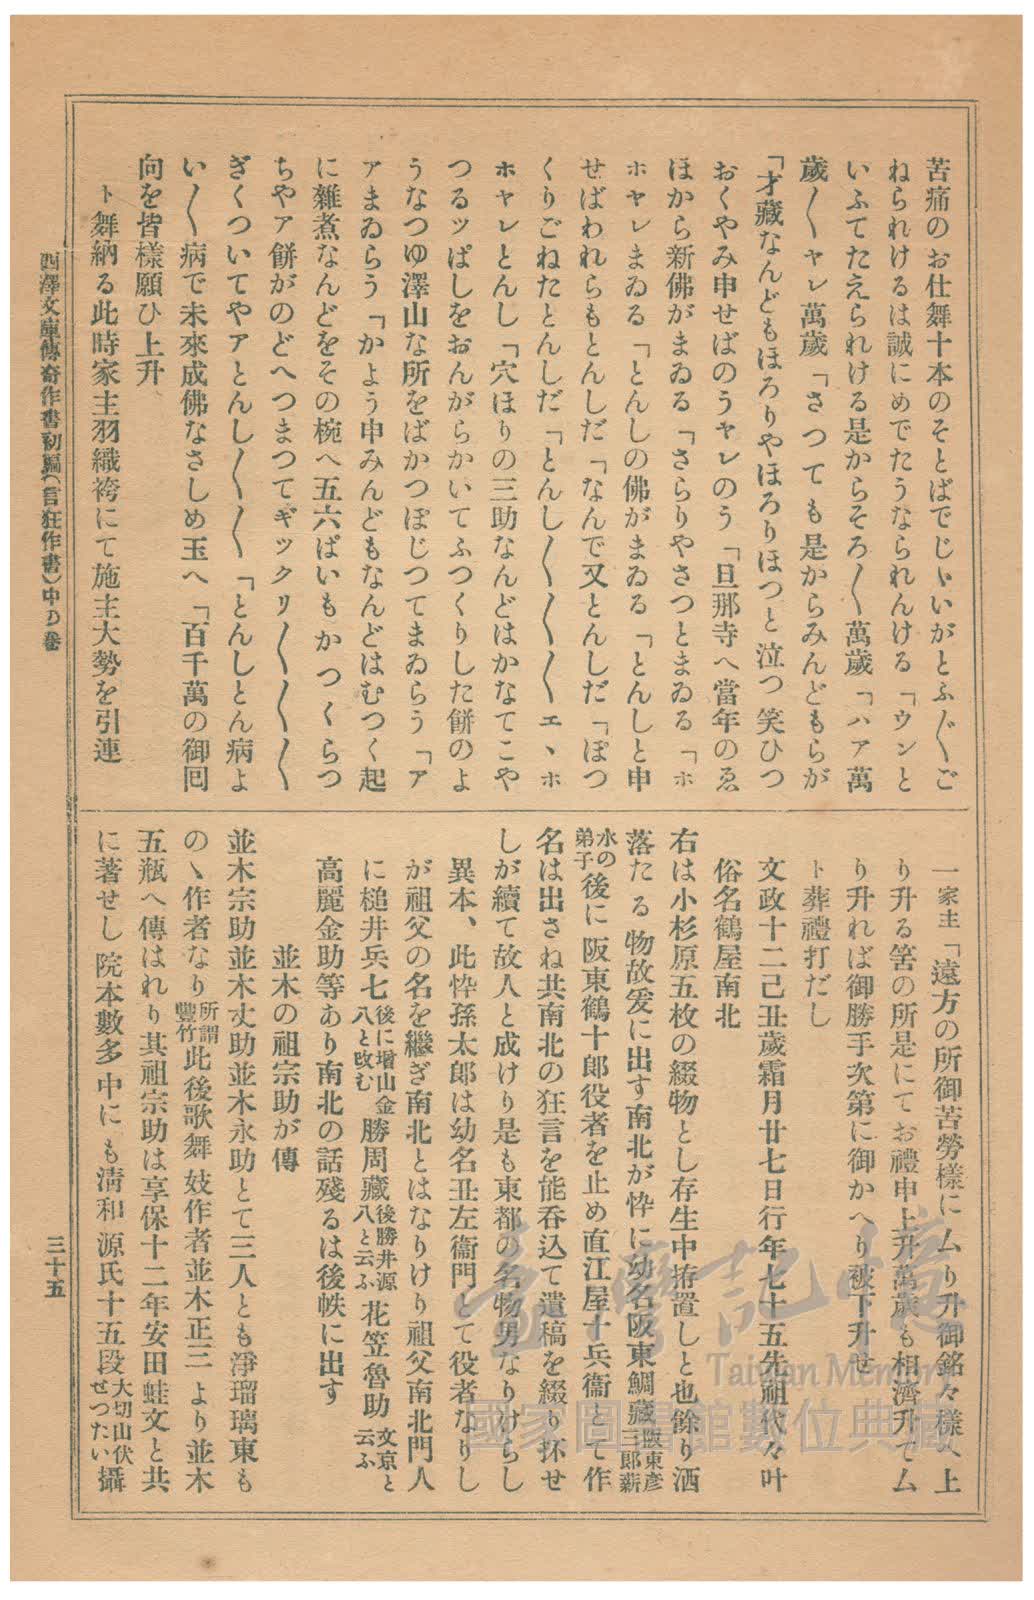 苦痛のお仕舞十本のそとばでじゝいがとふ〲ご
ねられけるは誠にめでたうなられんける「ウンと
いふてたえられける是からそろ〳〵萬歳「ハァ萬
歲〳〵ヤレ萬歲「さつても是からみんどもらが
「才藏なんどもほろりやほろりほつと泣つ笑ひつ
おくやみ申せばのうヤレのう「旦那寺へ當年のゑ
ほから新佛がまゐる「さらりやさつとまゐる「ホ
ホヤレまゐる「とんしの佛がまゐる「とんしと申
せばわれらもとんしだ「なんで又とんしだ「ぽつ
くりごねたとんしだ「とんし〳〵〳〵〳〵エヽホ
ホヤレとんし「穴ほりの三助なんどはかなてこや
つるツぱしをおんがらかいてふつくりした餅のよ
うなつゆ澤山な所をばかつぽじつてまゐらう「ア
アまゐらう「かよう申みんどもなんどはむつく起
に雜煮なんどをその椀へ五六ぱいもかつくらつ
ちやア餅がのどへつまつてギックリ〳〵〳〵〳〵
ぎくついてやアとんし〳〵〳〵「とんしとん病よ
い〳〵病で未來成佛なさしめ玉へ「百千萬の御囘
向を皆樣願ひ上升
ト舞納る此時家主羽織袴にて施主大勢を引連
一家主「遠方の所御苦勞樣にムり升御銘々樣へ上
り升る筈の所是にてお禮申上升萬歲も相濟升てム
り升れば御勝手次第に御かへり被下升せ
ト葬禮打だし
文政十二己丑歲霜月廿七日行年七十五先祖代々叶
俗名鶴屋南北
右は小杉原五枚の綴物とし存生中拵置しと也餘り洒
落たる物故爰に出す南北が忰に幼名阪東鯛藏阪東彦三郞薪
水の弟子後に阪東鶴十郞役者を止め直江屋十兵衞とて作
名は出さね共南北の狂言を能呑込て遺稿を綴り抔せ
しが續て故人と成けり是も東都の名物男なりけらし
異本、此忰孫太郞は幼名丑左衞門とて役者なりし
が祖父の名を繼ぎ南北とはなりけり祖父南北門人
に槌井兵七後に增山金八と改む勝周藏後勝井源八と云ふ花笠魯助文京と云ふ
高麗金助等あり南北の話殘るは後帙に出す
並木の祖宗助が傳
並木宗助並木丈助並木永助とて三人とも淨瑠璃東も
のヽ作者なり所謂豐竹此後歌舞妓作者並木正三より並木
五瓶へ傳はれり其祖宗助は享保十二年安田蛙文と共
に著せし院本數多中にも淸和源氏十五段大切山伏ぜつたい攝
西澤文庫傳奇作書初編(言狂作書)中の卷
三十五
臺灣記憶
Taiwan Memory
國家圖書館數位典藏